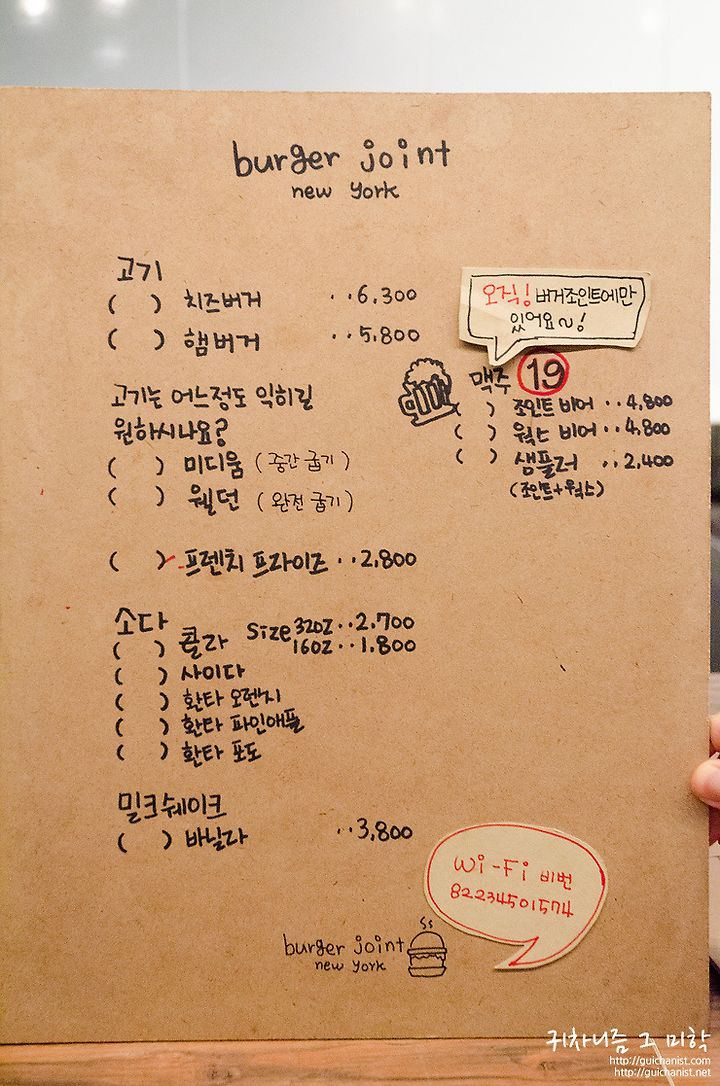 burger joint
new york
고기
( ) 치즈버거 ‥6,300
( ) 햄버거 ‥5,800
고기는 어느정도 익히길
원하시나요?
( ) 미디움 (중간 굽기)
( ) 웰던 (완전 굽기)
( ) 프렌치 프라이즈 ‥2,800
소다
( ) 콜라 size 32oz‥2,700
16oz‥1,800
( ) 사이다
( ) 환타 오렌지
( ) 환타 파인애플
( ) 환타 포도
밀크쉐이크
( ) 바닐라 ‥3,800
오직! 버거조인트에만
있어요~!
맥주 19
( ) 조인트 비어 ‥4,800
( ) 웍스 비어 ‥4,800
( ) 샘플러 ‥2,400
(조인트+웍스)
Wi-Fi 비번
82234501574
burger joint
new york
귀차니즘 그 미학
http://guichanist.com
http://guichanist.net